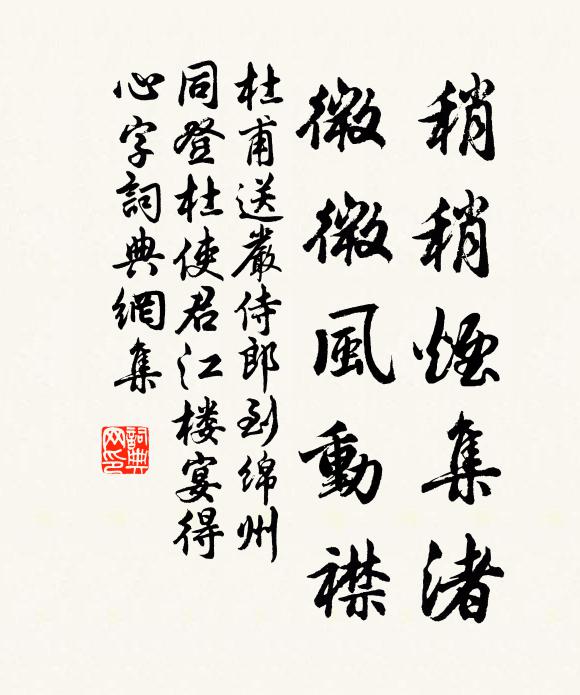 稍稍煙集渚
微微風動襟
杜甫送嚴侍郎到綿州
同登杜使君江楼宴得
心字詞典網集
詞典
网印